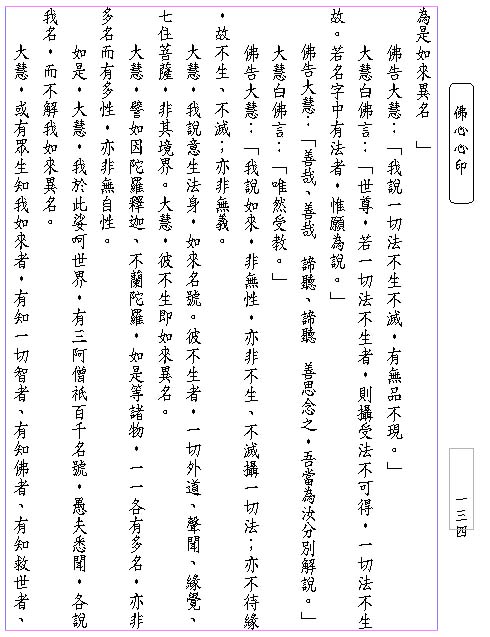 佛心心印
一三四
為是如來異名　」
佛告大慧：「我說一切法不生不滅，有無品不現。」
大慧白佛言：「世尊，若一切法不生者，則攝受法不可得，一切法不生
故。若名字中有法者，惟願為說。」
佛告大慧：「善哉、善哉　諦聽、諦聽　善思念之，吾當為汝分別解說。」
大慧白佛言：「唯然受教。」
佛告大慧：「我說如來，非無性，亦非不生、不滅攝一切法；亦不待緣
，故不生、不滅；亦非無義。
大慧，我說意生法身，如來名號。彼不生者，一切外道、聲聞、緣覺、
七住菩薩，非其境界。大慧，彼不生即如來異名。
大慧，譬如因陀羅釋迦、不蘭陀羅，如是等諸物，一一各有多名，亦非
多名而有多性，亦非無自性。
如是，大慧，我於此娑呵世界，有三阿僧祇百千名號，愚夫悉聞，各說
我名，而不解我如來異名。
大慧，或有眾生知我如來者，有知一切智者、有知佛者、有知救世者、